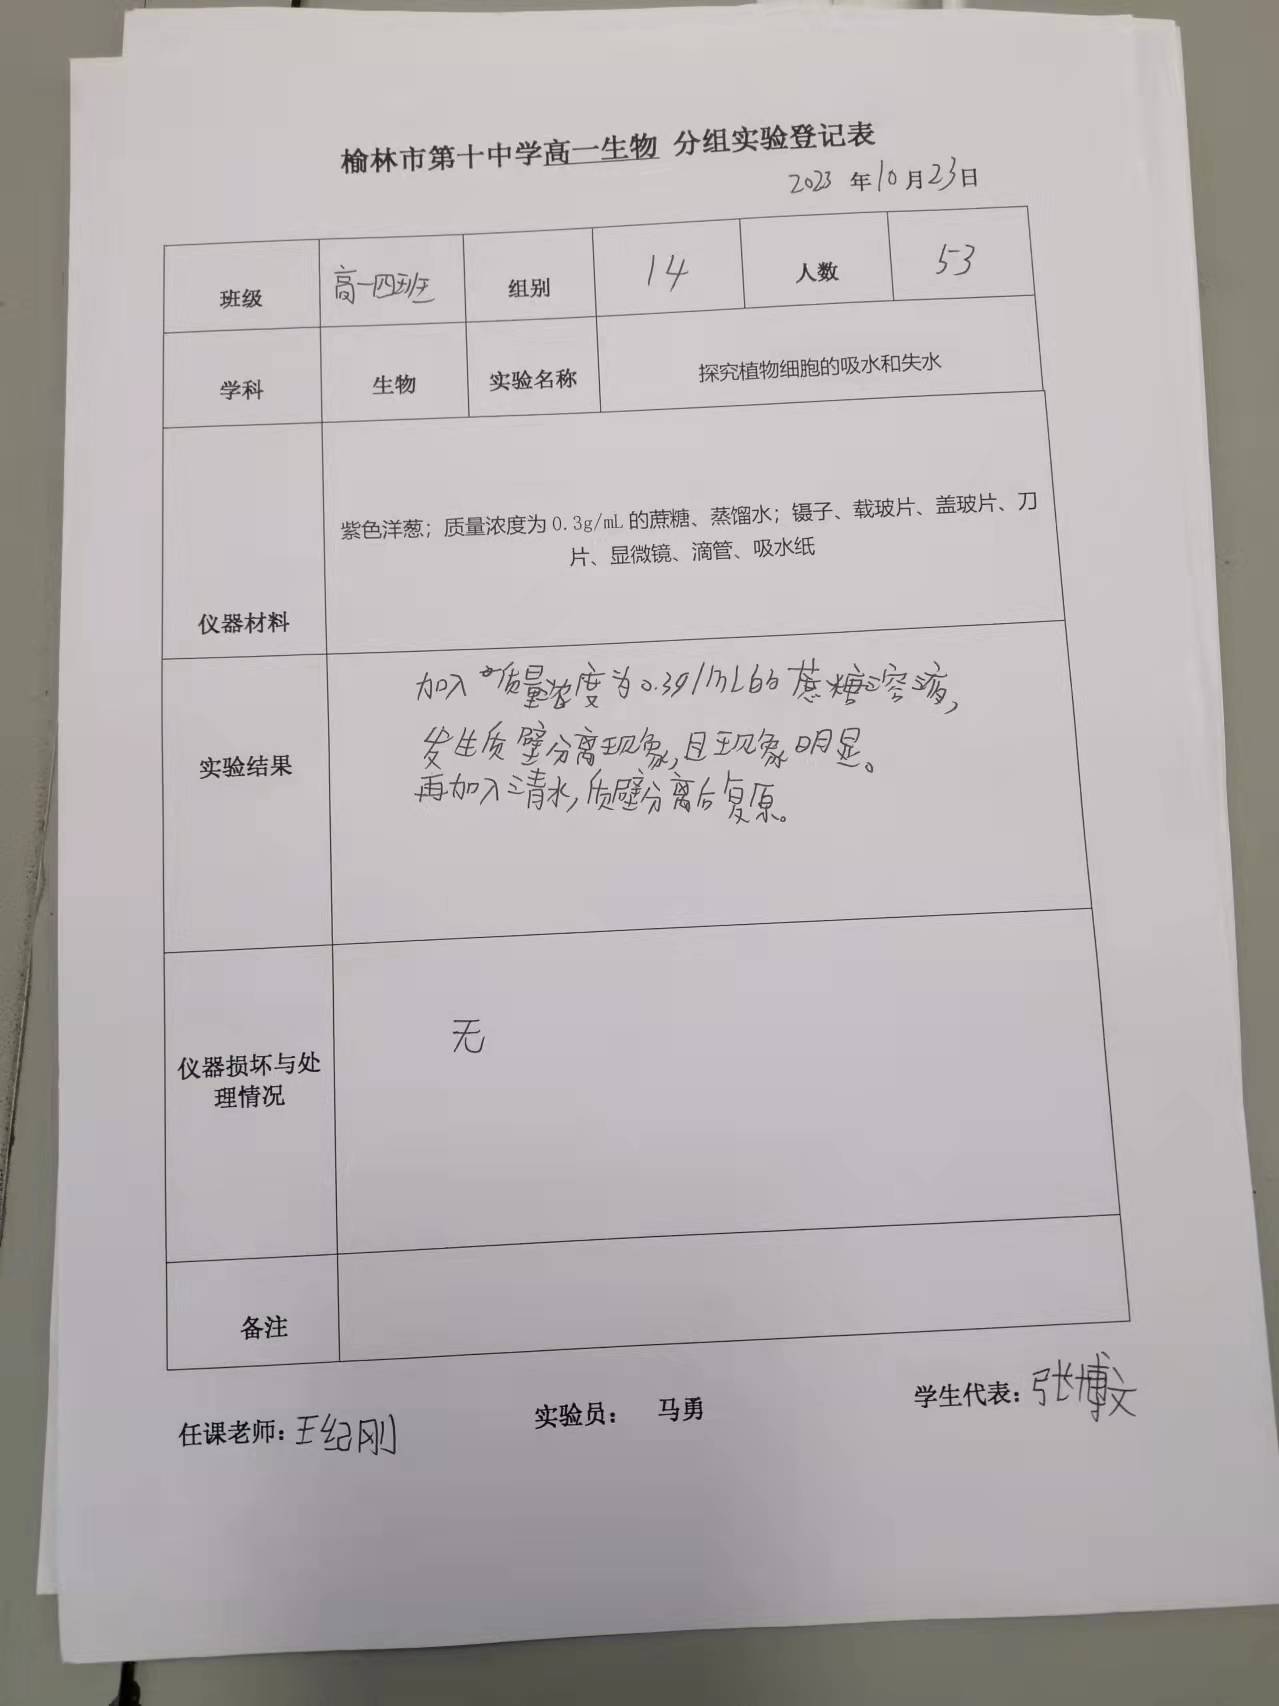 榆林市第十中学高一生物 分组实验登记表
2023 年10月23日
班级 高一四班 组别 14 人数 53
学科 生物 实验名称 探究植物细胞的吸水和失水
仪器材料
紫色洋葱；质量浓度为 0.3g/mL 的蔗糖、蒸馏水；镊子、载玻片、盖玻片、刀
片、显微镜、滴管、吸水纸
实验结果
加入质量浓度为0.3g/mL的蔗糖溶液，
发生质壁分离现象，且现象明显。
再加入清水，质壁分离后复原。
仪器损坏与处
理情况
无
备注
任课老师：王纪刚 实验员： 马勇 学生代表：张博文